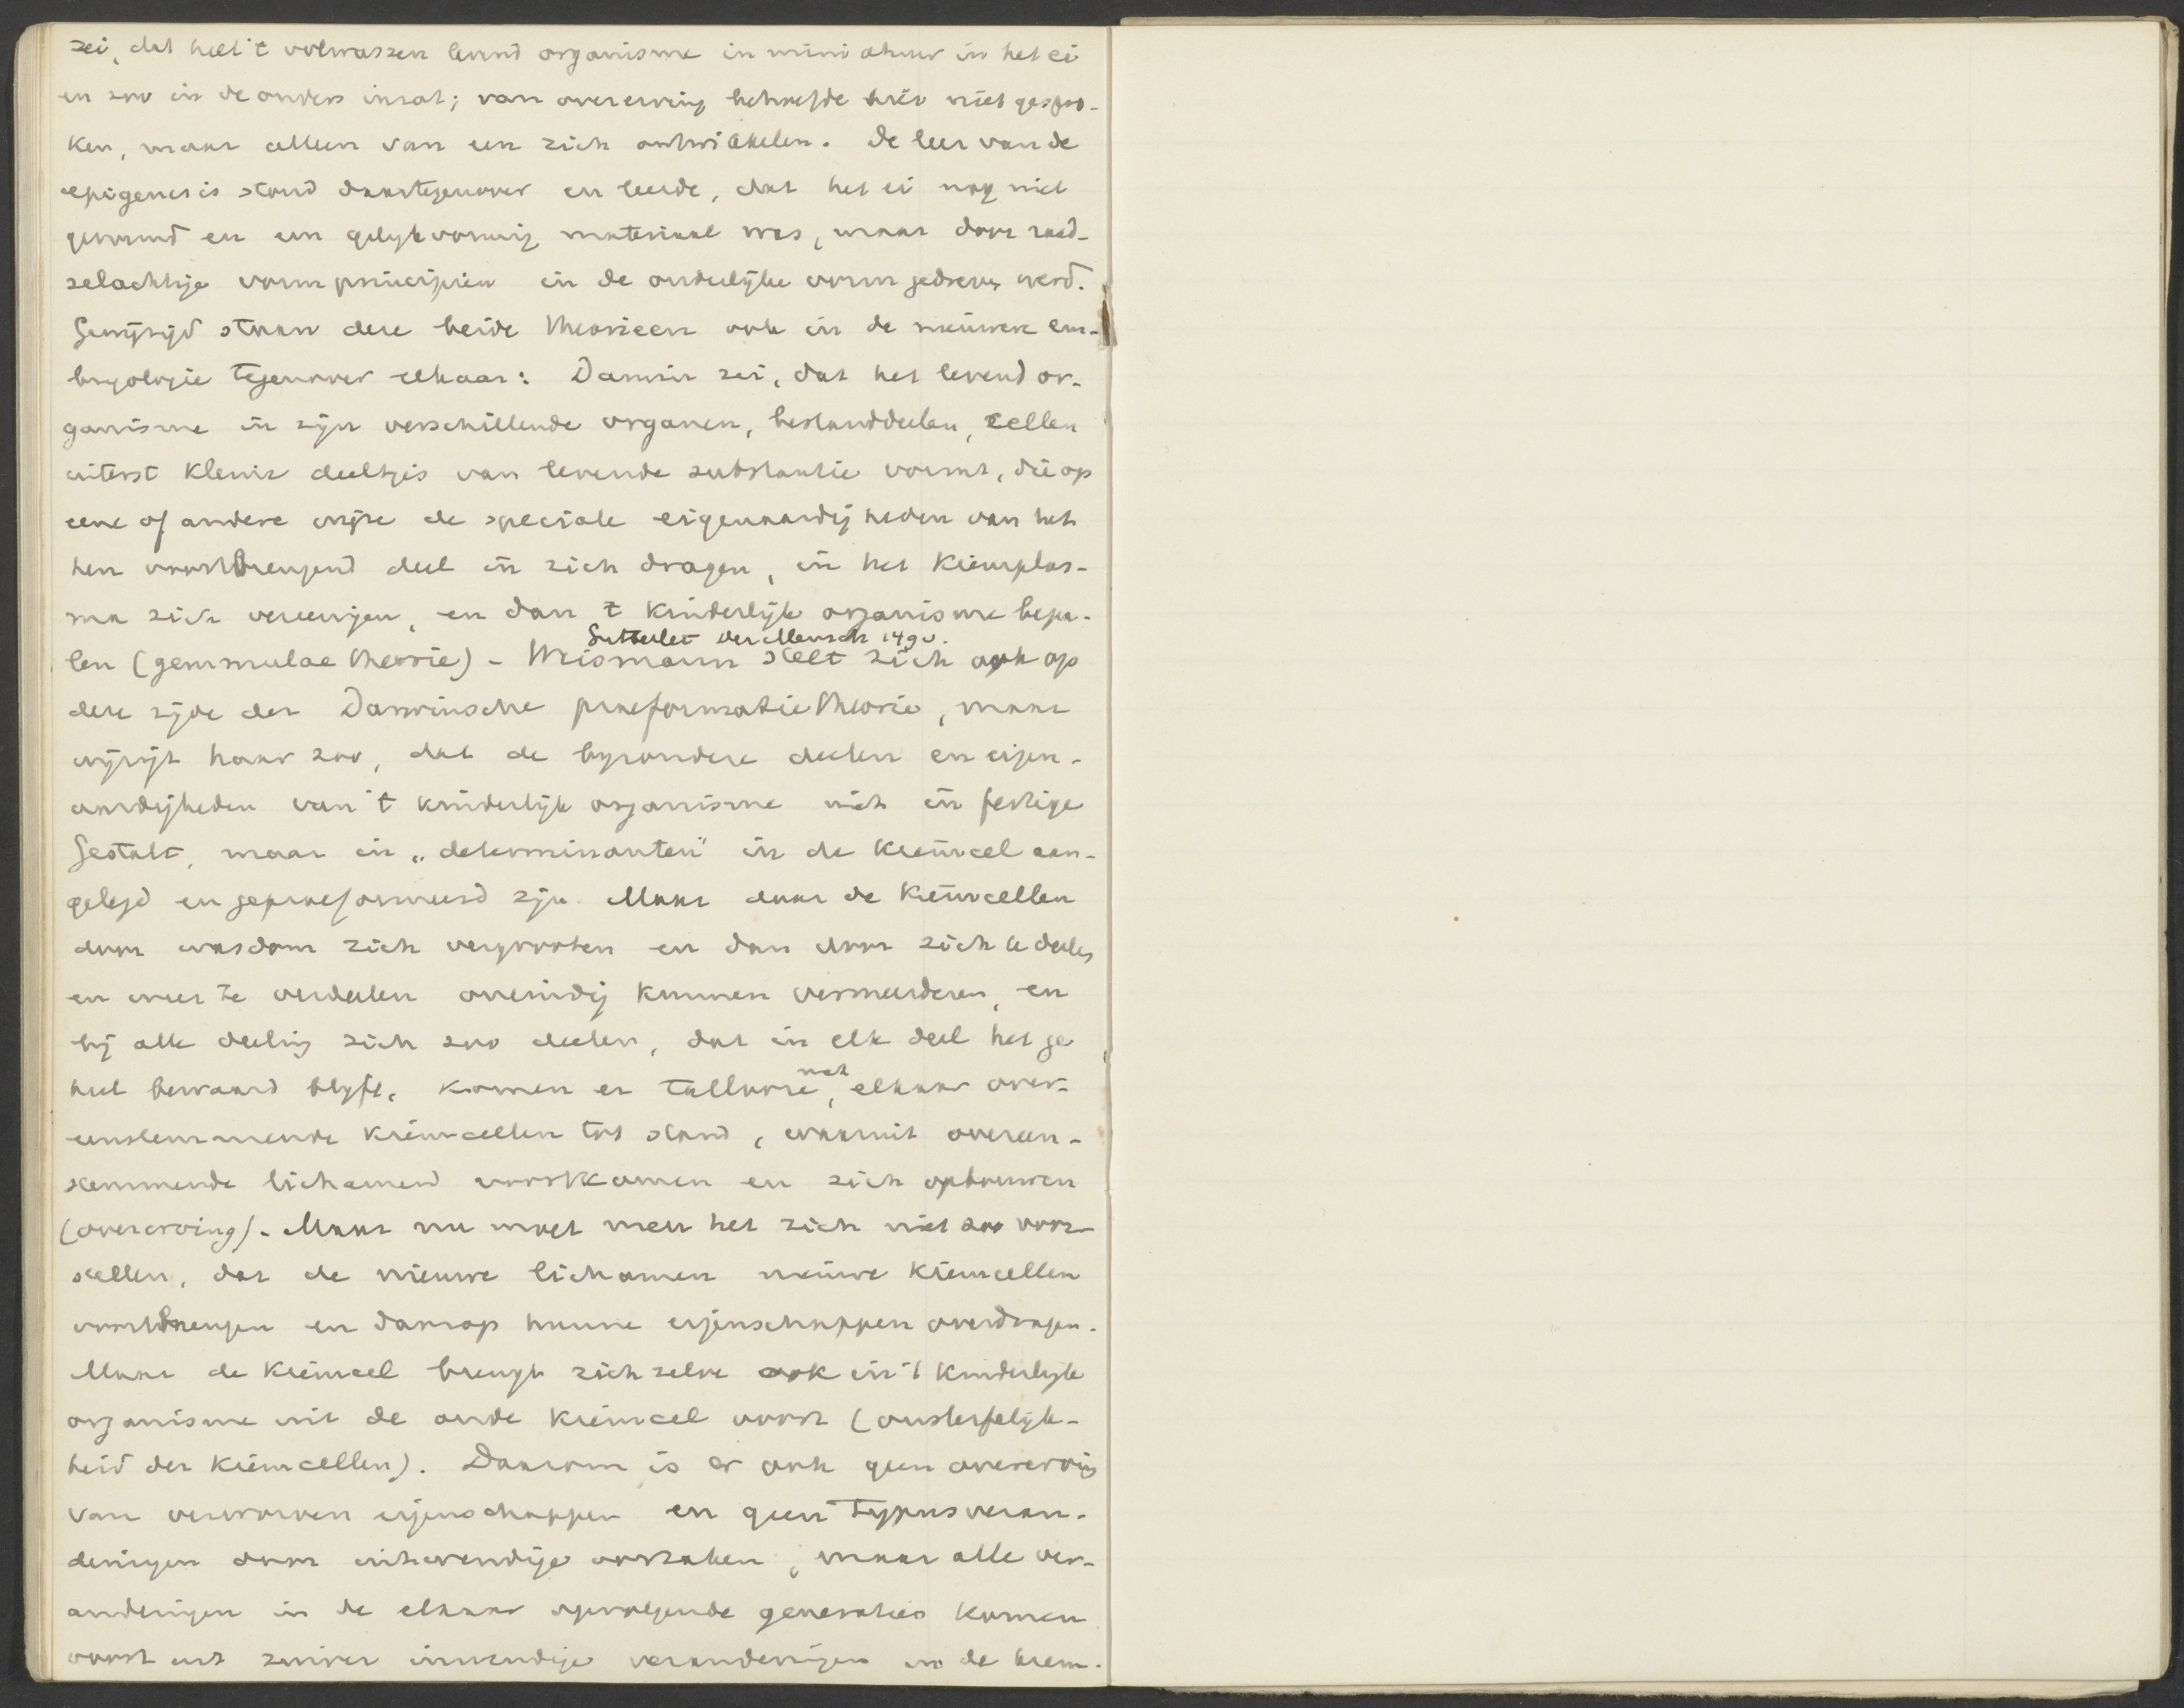 zei, dat heel 't volwassen levend organisme in miniatuur in het ei
en zoo in de ouders inzat; van overerving behoefde hier niet gespro-
ken, maar alleen van een zich ontwikkelen. De leer van de
epigenesis stond daartegenover en leerde, dat het ei nog niet
gevormd en een gelykvormig materiaal was, maar door raad-
selachtige vormprincipien in de ouderlijke vorm gedreven werd.
Gewijzigd staan deze beide theorieen ook in de nieuwere em-
bryologie tegenover elkaar: Darwin zei, dat het levend or-
ganisme in zijn verschillende organen, bestanddeelen, cellen
uiterst kleine deeltjes van levende substantie vormt, die op
eene of andere wijze de speciale eigenaardigheden van het
hen voortbrengend deel in zich dragen, in het kiemplas-
ma zich vereenigen, en dan 't kinderlijk organisme bepa-
len (gemmulae theorie) - Weismann stelt zich ook op
Gutberlet Der Mensch 149v.
deze zijde der Darwinsche praeformatie theorie, maar
wijzigt haar zoo, dat de byzondere deelen en eigen-
aardigheden van 't kinderlijk organisme niet in fertige
Gestalt, maar in „determinanten" in de kiemcel aan-
gelegd en gepraeformeerd zijn. Maar daar de kiemcellen
door wasdom zich vergrooten en dan door zich te deelen
en weer te verdeelen oneindig kunnen vermeerderen, en
bij alle deeling zich zoo deelen, dat in elk deel het ge
heel bewaard blyft, komen er tallooze, met elkaar over-
eenstemmende kiemcellen tot stand, waaruit overeen-
stemmende lichamen voortkomen en zich opbouwen
(overerving). Maar nu moet men het zich niet zoo voor-
stellen, dat de nieuwe lichamen nieuwe kiemcellen
voortbrengen en daarop hunne eigenschappen overdragen.
Maar de kiemcel brengt zich zelve ook in 't kinderlyk
organisme uit de oude kiemcel voort (onsterfelijk-
heid der kiemcellen). Daarom is er ook geen overerving
van verworven eigenschappen en geen typusveran-
deringen door uitwendige oorzaken, maar alle ver-
anderingen in de elkaar opvolgende generaties komen
voort uit zuiver inwendige veranderingen in de kiem-